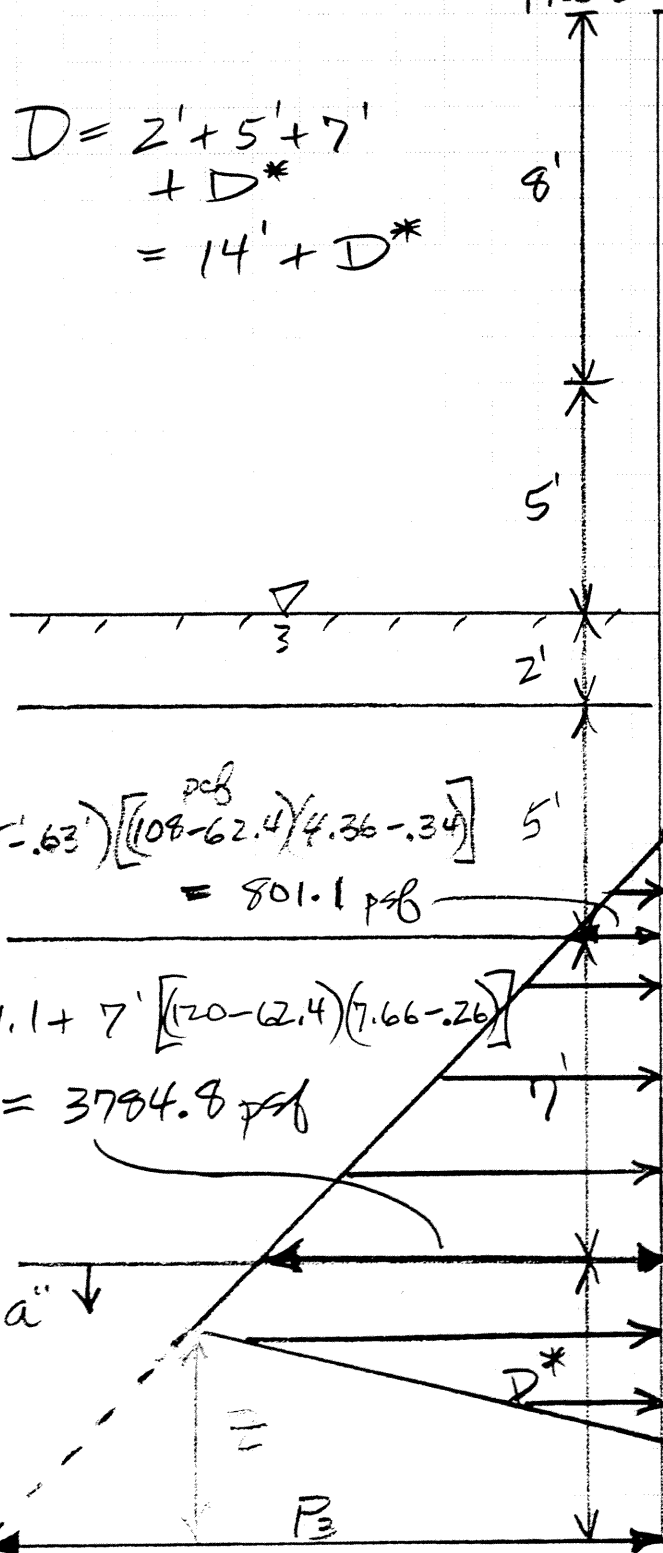 D = 2' + 5' + 7'
+ D*
= 14' + D*
8'
5'
3
2'
pcf
-.63')[(108-62.4)(4.36-.34)]
5'
= 801.1 psf
1.1 + 7'[(120-62.4)(7.66-.26)]
= 3784.8 psf
7'
a"
D*
z
P3